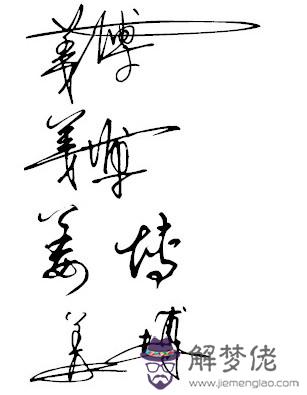 姜博
姜博
姜 博
姜博
解梦佬
www.jiemenglao.com